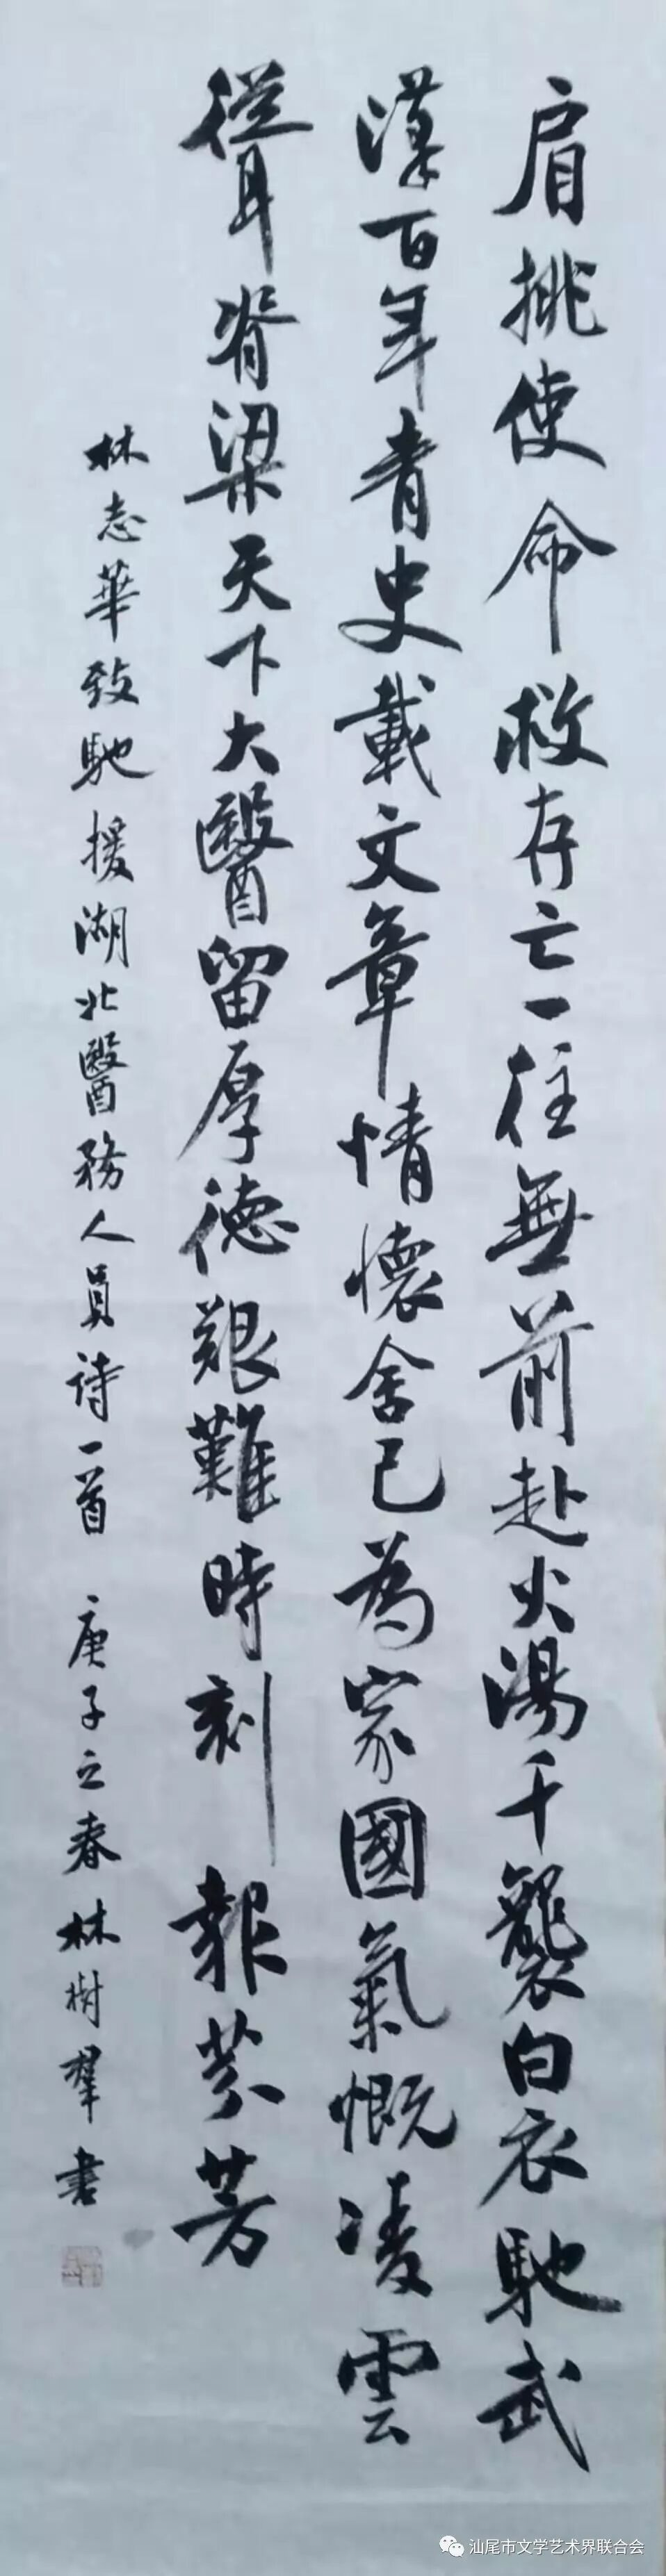 肩挑使命救存亡一往無前赴火湯千襲白衣馳武
漢百年青史載文章情懷舍己為家國氣慨凌雲
聳脊梁天下大醫留厚德艱難時刻報芬芳
林志華致馳援湖北醫務人員诗一首 庚子之春林樹羣書
汕尾市文学艺术界联合会